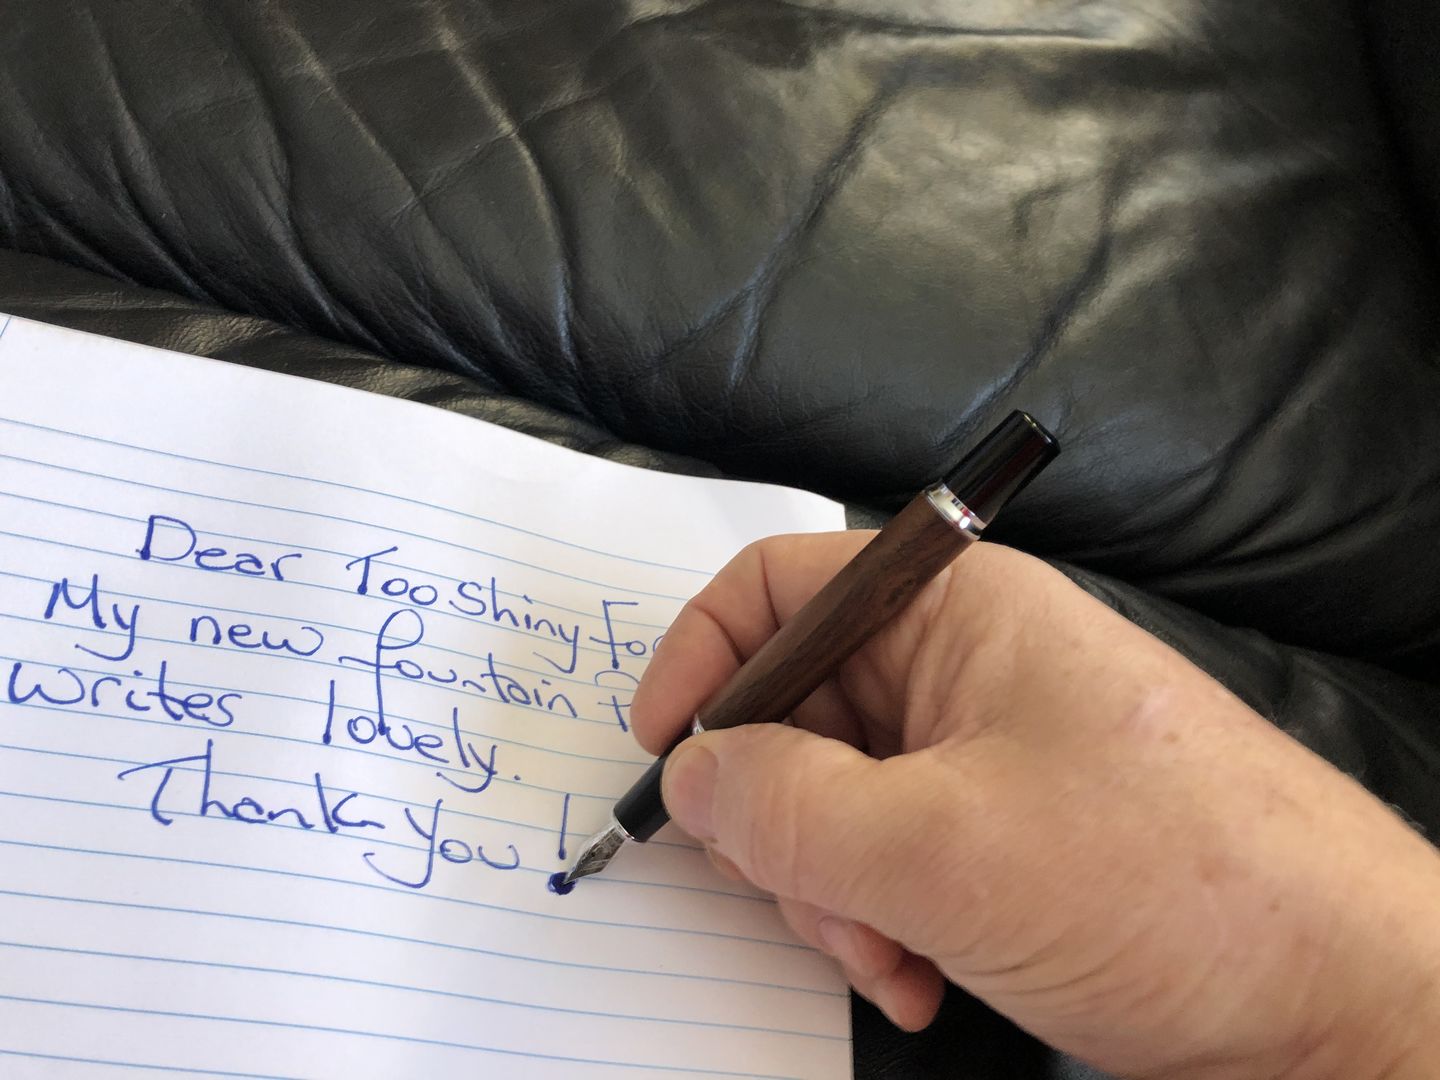 Dear Too Shiny
My new fountain
writes lovely.
Thank you!